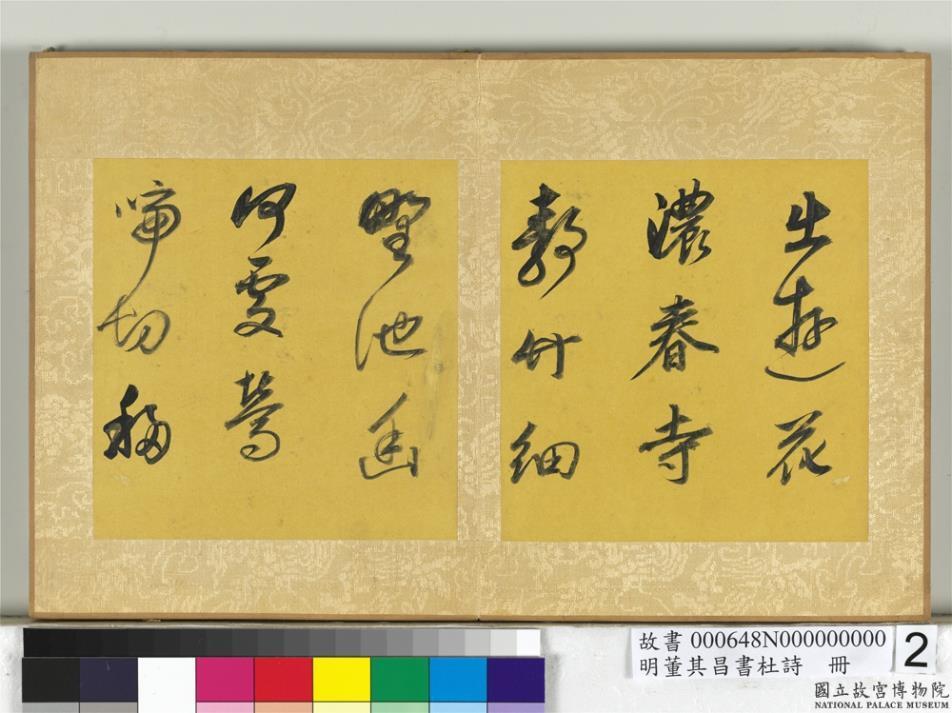 出遊花
濃春寺
靜竹細
野池幽
何處鶯
啼切移
故書 000648N000000000
明董其昌書杜詩 冊
2
國立故宮博物院
NATIONAL PALACE MUSEUM